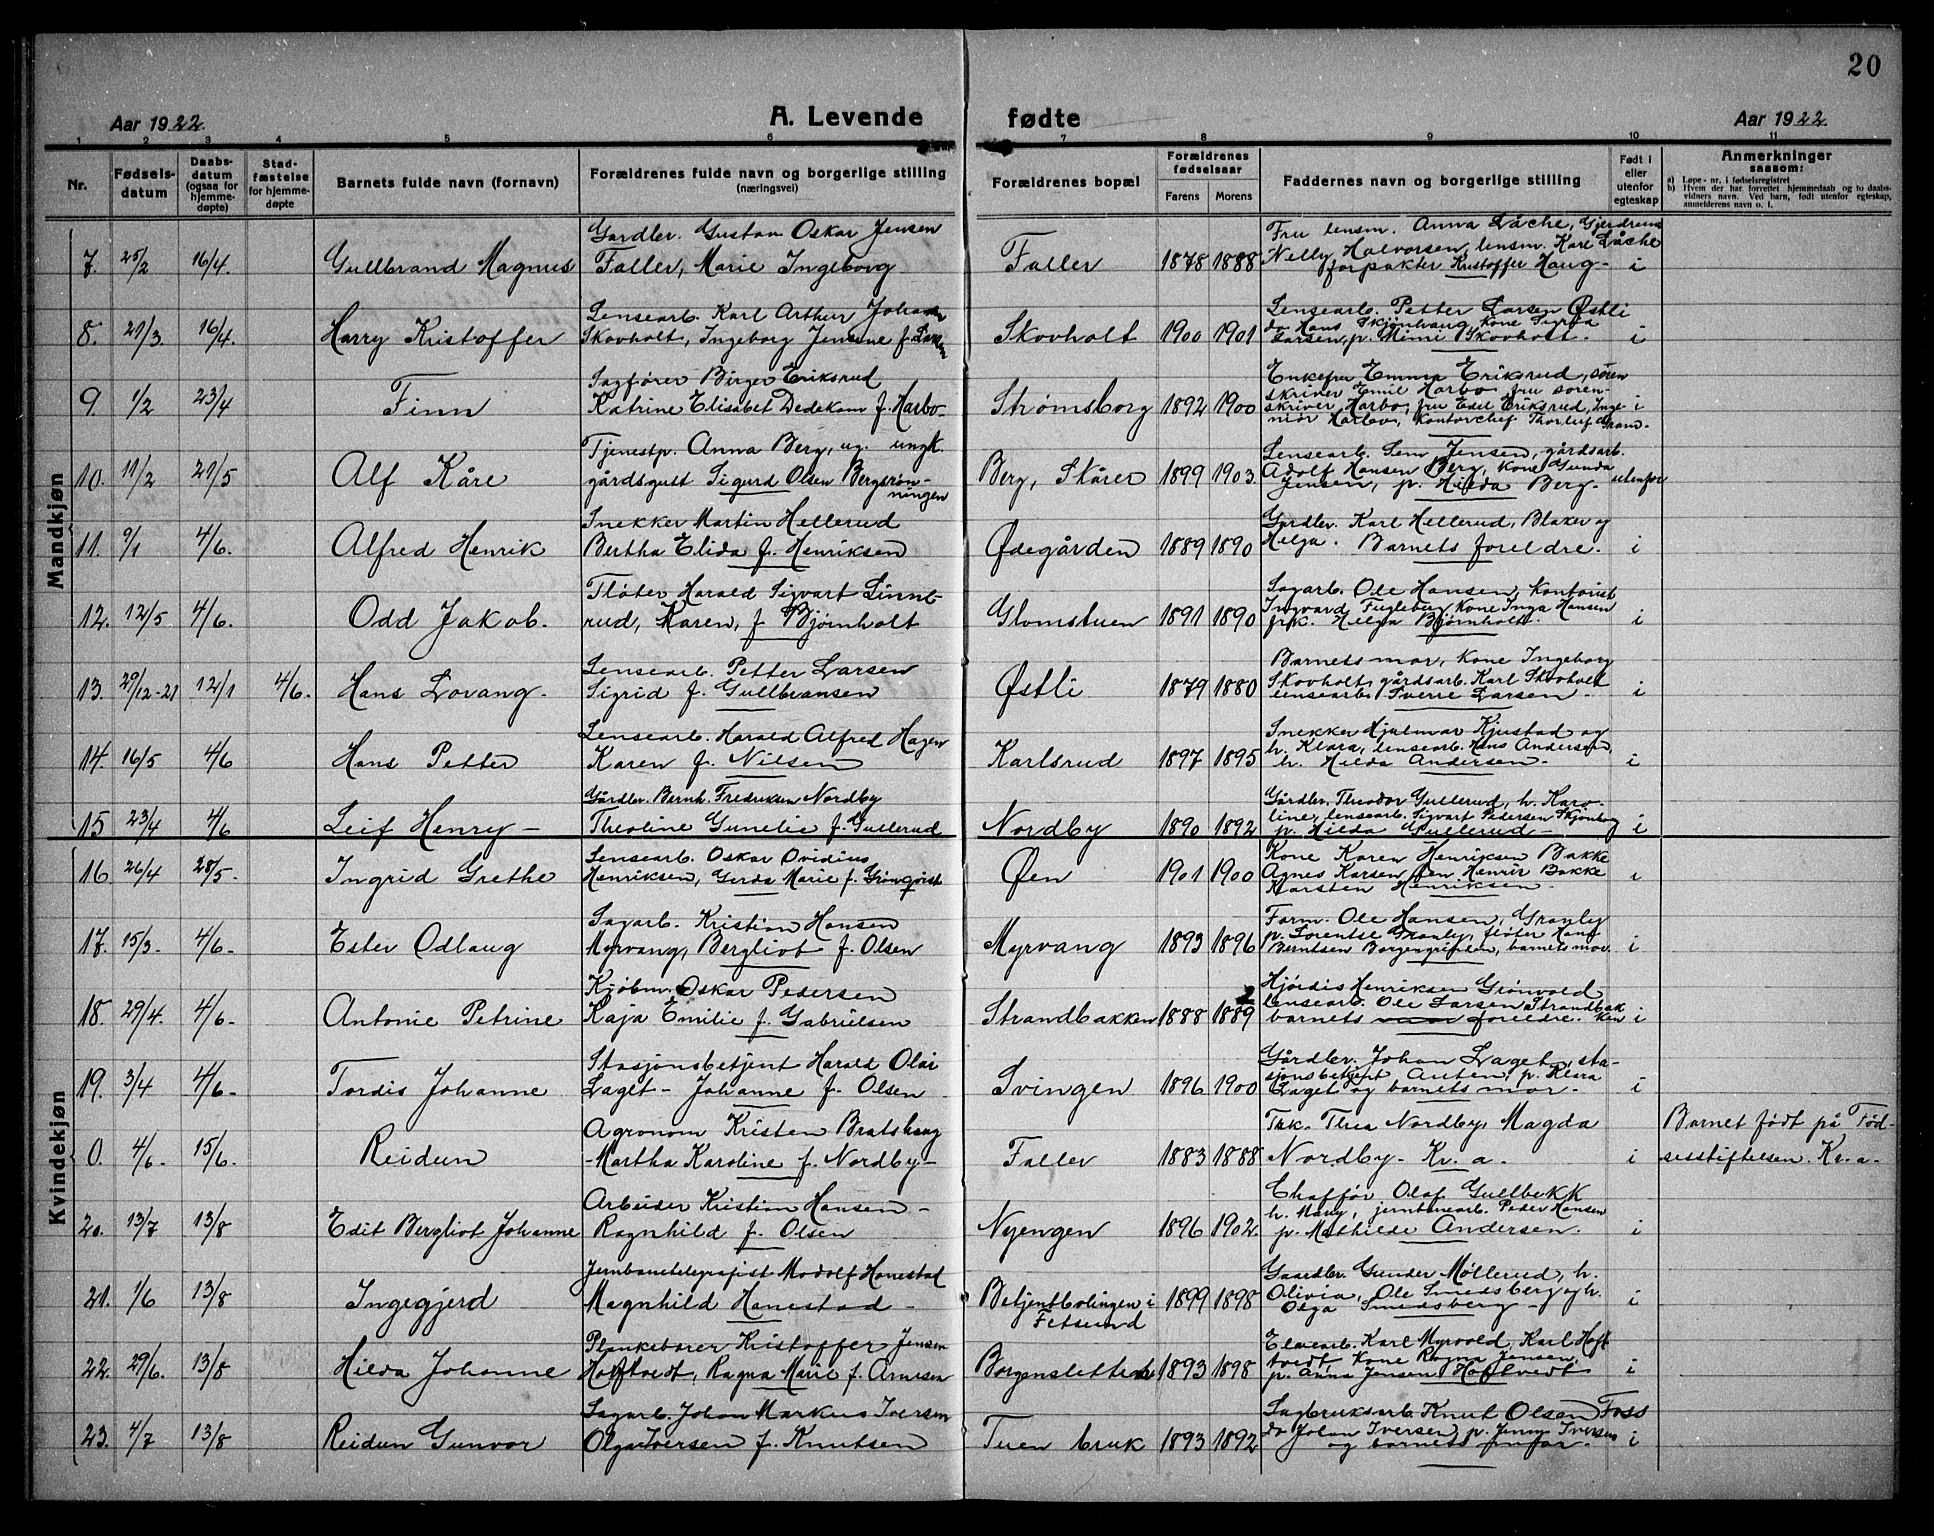 20
Aar 1922.
A. Levende
fødte
Aar 1922.
1 2 3 4 5 6 7 8 9 10 11
Nr.
Fødsels-
datum
Daabs-
datum
(ogsaa for
hjemme-
døpte)
Stad-
fæstelse
for hjemme-
døpte
Barnets fulde navn (fornavn)
Forældrenes fulde navn og borgerlige stilling
(næringsvei)
Forældrenes bopæl
Forældrenes
fødselsaar
Farens Morens
Faddernes navn og borgerlige stilling
Født i
eller
utenfor
egteskap
Anmerkninger
saasom:
a) Løpe-nr. i fødselsregistret
b) Hvem der har forrettet hjemmedaab og to daabs-
vidners navn. Ved barn, født utenfor egteskap,
anmelderens navn o. l.
Mandkjøn
7. 25/2 16/4. Gullbrand Magnus
Gardbr. Gustav Oskar Jensen
Faller, Marie Ingeborg
Faller 1878 1888
Fru lensm. Anna Låche, Gjerdrum
Nelly Halvorsen, lensm. Karl Låche
forpakter Kristoffer Haug - i
8. 21/3 16/4. Harry Kristoffer
Lensearb. Karl Arthur Johansen
Skovholt, Ingeborg Jensine f. Larsen
Skovholt 1900 1901
Lensearb. Petter Larsen Østli
do Hans Skjønhaug, Kone Sigrid
Larsen, p. Mimi Skovholt. i
9. 1/2 23/4 Finn
Sagfører Birger Eriksrud
Katrine Elisabet Dedekam f. Harbo-
Strømsborg 1892 1900
Enkefru Emma Eriksrud, soren
skriver Emil Harbo, fru soren-
skriver Harbo, fru Edel Eriksrud, Inge- i
mor Harbo, Kontorchef Thorluf
10. 11/2 21/5 Alf Kåre
Tjenestp. Anna Berg, ug. ungk.
gårdsgutt Sigurd Olsen Bergsrøn-
ningen
Berg, Skårer 1899 1903.
Lensearb. Lem Jensen, gårdsarb.
Adolf Hansen Berg, Kone Gunda
Jensen, p. Hilda Berg - utenfor
11. 9/1 4/6. Alfred Henrik
Snekker Martin Hellerud
Bertha Elida f. Henriksen
Ødegården 1889 1890
Gardbr. Karl Hellerud, Blaker og
Helga. Barnets foreldre. i
12. 12/5 4/6. Odd Jakob.
Fløter Harald Sigvart Linne-
rud, Karen, f. Bjørnholt
Glomstuen 1891 1890
Sagarb. Ole Hansen, Kontorist
Ingvard Fugleberg, Kone Inga Hansen
frk. Helga Bjørnholt. i
13. 29/12-21 12/1 4/6. Hans Lovang -
Lensearb. Petter Larsen
Sigrid f. Gullbransen
Østli 1879 1880
Barnets mor, Kone Ingeborg
Skovholt, gårdsarb. Karl Skovholt
lensearb. Sverre Larsen - i
14. 16/5 4/6 Hans Petter
Lensearb. Harald Alfred Hagen
Karen f. Nilsen
Karlsrud 1897 1895
Snekker Hjalmar Kjustad og
h. Klara, lensearb. Hans Andersen,
h. Hilda Andersen - i
15 23/4 4/6 Leif Henry -
Gårdbr. Bernh. Fredriksen Nordby
Theoline Gunelie f. Gullerud
Nordby 1890 1892
Gårdbr. Theodor Gullerud, h. Karo-
line, lensearb. Sigvart Pedersen Skjønhaug
p. Hilda Gullerud - i
Kvindekjøn
16. 26/4 28/5- Ingrid Grethe
Lensearb. Oskar Ovidius
Henriksen, Gerda Marie f. Grønqvist
Øen 1901 1900
Kone Karen Henriksen Bakke
Agnes Karsen Øen Henrik Bakke
Karsten Henriksen - i
17. 15/3. 4/6- Ester Odlaug
Sagarb. Kristian Hansen
Myrvang, Bergliot f. Olsen
Myrvang 1893 1896
Form. Ole Hansen, Granly
p. Lorentse Granly, fløter Hans
Berntsen Borgengrinden, barnets mor. i
18. 29/4. 4/6- Antonie Petrine
Kjøbm. Oskar Pedersen
Kaja Emilie f. Gabrielsen
Strandbakken 1888 1889
2
Hjørdis Henriksen Grønvold
lensearb. Ole Larsen Strandbak
barnets foreldre. ken i
19. 3/4 4/6- Tordis Johanne
Stasjonsbetjent Harald Olai
Laget - Johanne f. Olsen
Svingen 1896 1900
Gårdbr. Johan Laget, sta-
sjonsbetjent Anten, p. Klara
Laget og barnets mor - i
0. 4/6- 15/6- Reidun
Agronom Kristen Bratshaug
- Martha Karoline f. Nordby -
Faller 1883 1888
Frk. Thea Nordby, Magda
Nordby - Kr. a. i
Barnet født på Fød-
selsstiftelsen. Kr. a -
20. 13/7 13/8 Edit Bergliot Johanne
Arbeider Kristian Hansen -
Ragnhild f. Olsen
Nyengen 1896 1902.
Chaffør Olaf Gullbekk
h. Mary, jernbanearb. Peder Hansen
p. Mathilde Andersen. i
21. 1/6 13/8 Ingegjerd
Jernbanetelegrafist Modolf Hanestad
Magnhild Hanestad -
Betjentbolingen i
Fetsund
1899 1898
Gaardbr. Gunder Møllerud, h.
Olivia, Ole Smedsberg og h.
Olga Smedsberg - i
22. 29/6. 13/8 Hilda Johanne
Plankebærer Kristoffer Jensen
Hoftvedt, Ragna Marie f. Arnesen
Borgensletten 1893 1898
Elvearb. Karl Myrvold, Karl Hoft
tvedt, Kone Ragna Jensen,
p. Anna Jensen Hoftvedt i
23. 4/7 13/8 Reidun Gunvor
Sagarb. Johan Markus Iversen
Olga Iversen f. Knutsen
Tuen bruk 1893 1892
Sagbruksarb. Knut Olsen Foss
do Johan Iversen p. Jenny Iversen
og barnets forfar. i